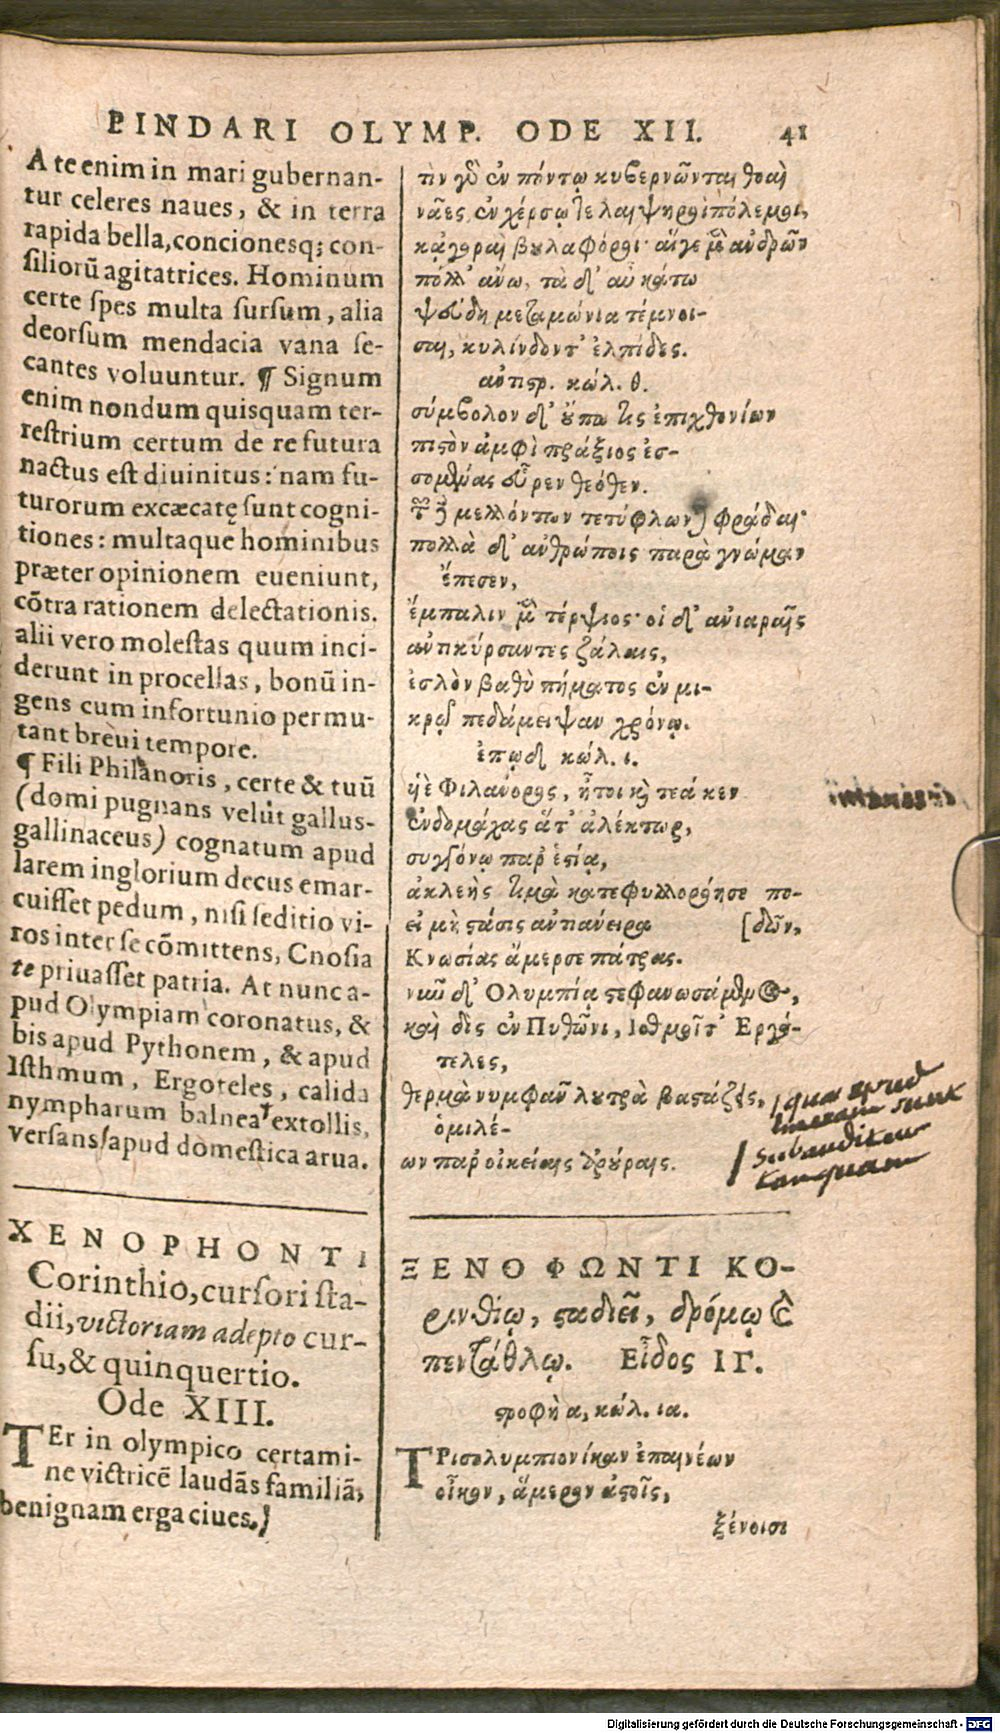 PINDARI OLYMP. ODE XII. 41
A te enim in mari gubernan-
tur celeres naues, & in terra
rapida bella, concionesq; con-
siliorū agitatrices. Hominum
certe spes multa sursum, alia
deorsum mendacia vana se-
cantes voluuntur. ¶ Signum
enim nondum quisquam ter-
restrium certum de re futura
nactus est diuinitus: nam fu-
turorum excæcatę sunt cogni-
tiones: multaque hominibus
præter opinionem eueniunt,
cōtra rationem delectationis.
alii vero molestas quum inci-
derunt in procellas, bonū in-
gens cum infortunio permu-
tant breui tempore.
¶ Fili Philanoris, certe & tuū
(domi pugnans velut gallus-
gallinaceus) cognatum apud
larem inglorium decus emar-
cuisset pedum, nisi seditio vi-
ros inter se cōmittens, Cnosia
te priuasset patria. At nunc a-
pud Olympiam coronatus, &
bis apud Pythonem, & apud
Isthmum, Ergoteles, calida
nympharum balnea extollis,
versans apud domestica arua.
XENOPHONTI
Corinthio, cursori sta-
dii, victoriam adepto cur-
su, & quinquertio.
Ode XIII.
TEr in olympico certami-
ne victricē laudās familiā,
benignam erga ciues,
τὶν γὸ ἐν πόντῳ κυβερνῶνται θοαὶ
νᾶες, ἐν χέρσῳ τε λαιψηροὶ πόλεμοι,
κἀγοραὶ βουλαφόροι· αἵγε μὲν ἀνδρῶν
πόλλ' ἄνω, τὰ δ' αὖ κάτω
ψεύδη μεταμώνια τέμνοι-
σαι, κυλίνδοντ' ἐλπίδες.
ἀντιστρ. κώλ. θ.
σύμβολον δ' οὔπω τις ἐπιχθονίων
πιστὸν ἀμφὶ πράξιος ἐσ-
σομένας εὗρεν θεόθεν.
τῶν δὲ μελλόντων τετύφλωνται φράδαι·
πολλὰ δ' ἀνθρώποις παρὰ γνώμαν
ἔπεσεν,
ἔμπαλιν μὲν τέρψιος· οἱ δ' ἀνιαραῖς
ἀντικύρσαντες ζάλαις,
ἐσλὸν βαθὺ πήματος ἐν μι-
κρῷ πεδάμειψαν χρόνῳ.
ἐπῳδ κώλ. ι.
ὑὲ Φιλάνορος, ἤτοι καὶ τεά κεν
ἐνδομάχας ἅτ' ἀλέκτωρ,
συγγόνῳ παρ' ἑστίᾳ,
ἀκλεὴς τιμὰ κατεφυλλορόησε πο-
εἰ μὴ στάσις ἀντιάνειρα [δῶν,
Κνωσίας ἄμερσε πάτρας.
νῦν δ' Ὀλυμπίᾳ στεφανωσάμενος,
καὶ δὶς ἐν Πυθῶνι, Ἰσθμοῖτ' Ἐργό-
τελες,
θερμὰ νυμφᾶν λουτρὰ βαστάζεις,
ὁμιλέ-
ων παρ' οἰκείαις ἀρούραις.
ΞΕΝΟΦΩΝΤΙ ΚΟ-
ρινθίῳ, σταδιεῖ, δρόμῳ καὶ
πεντάθλῳ. Εἶδος ΙΓ.
στροφὴ α, κώλ. ια.
ΤΡισολυμπιονίκαν ἐπαινέων
οἶκον, ἅμερον ἀστοῖς,
ξένοισι
quae apud
sunt
subauditur
tanquam
Digitalisierung gefördert durch die Deutsche Forschungsgemeinschaft - DFG